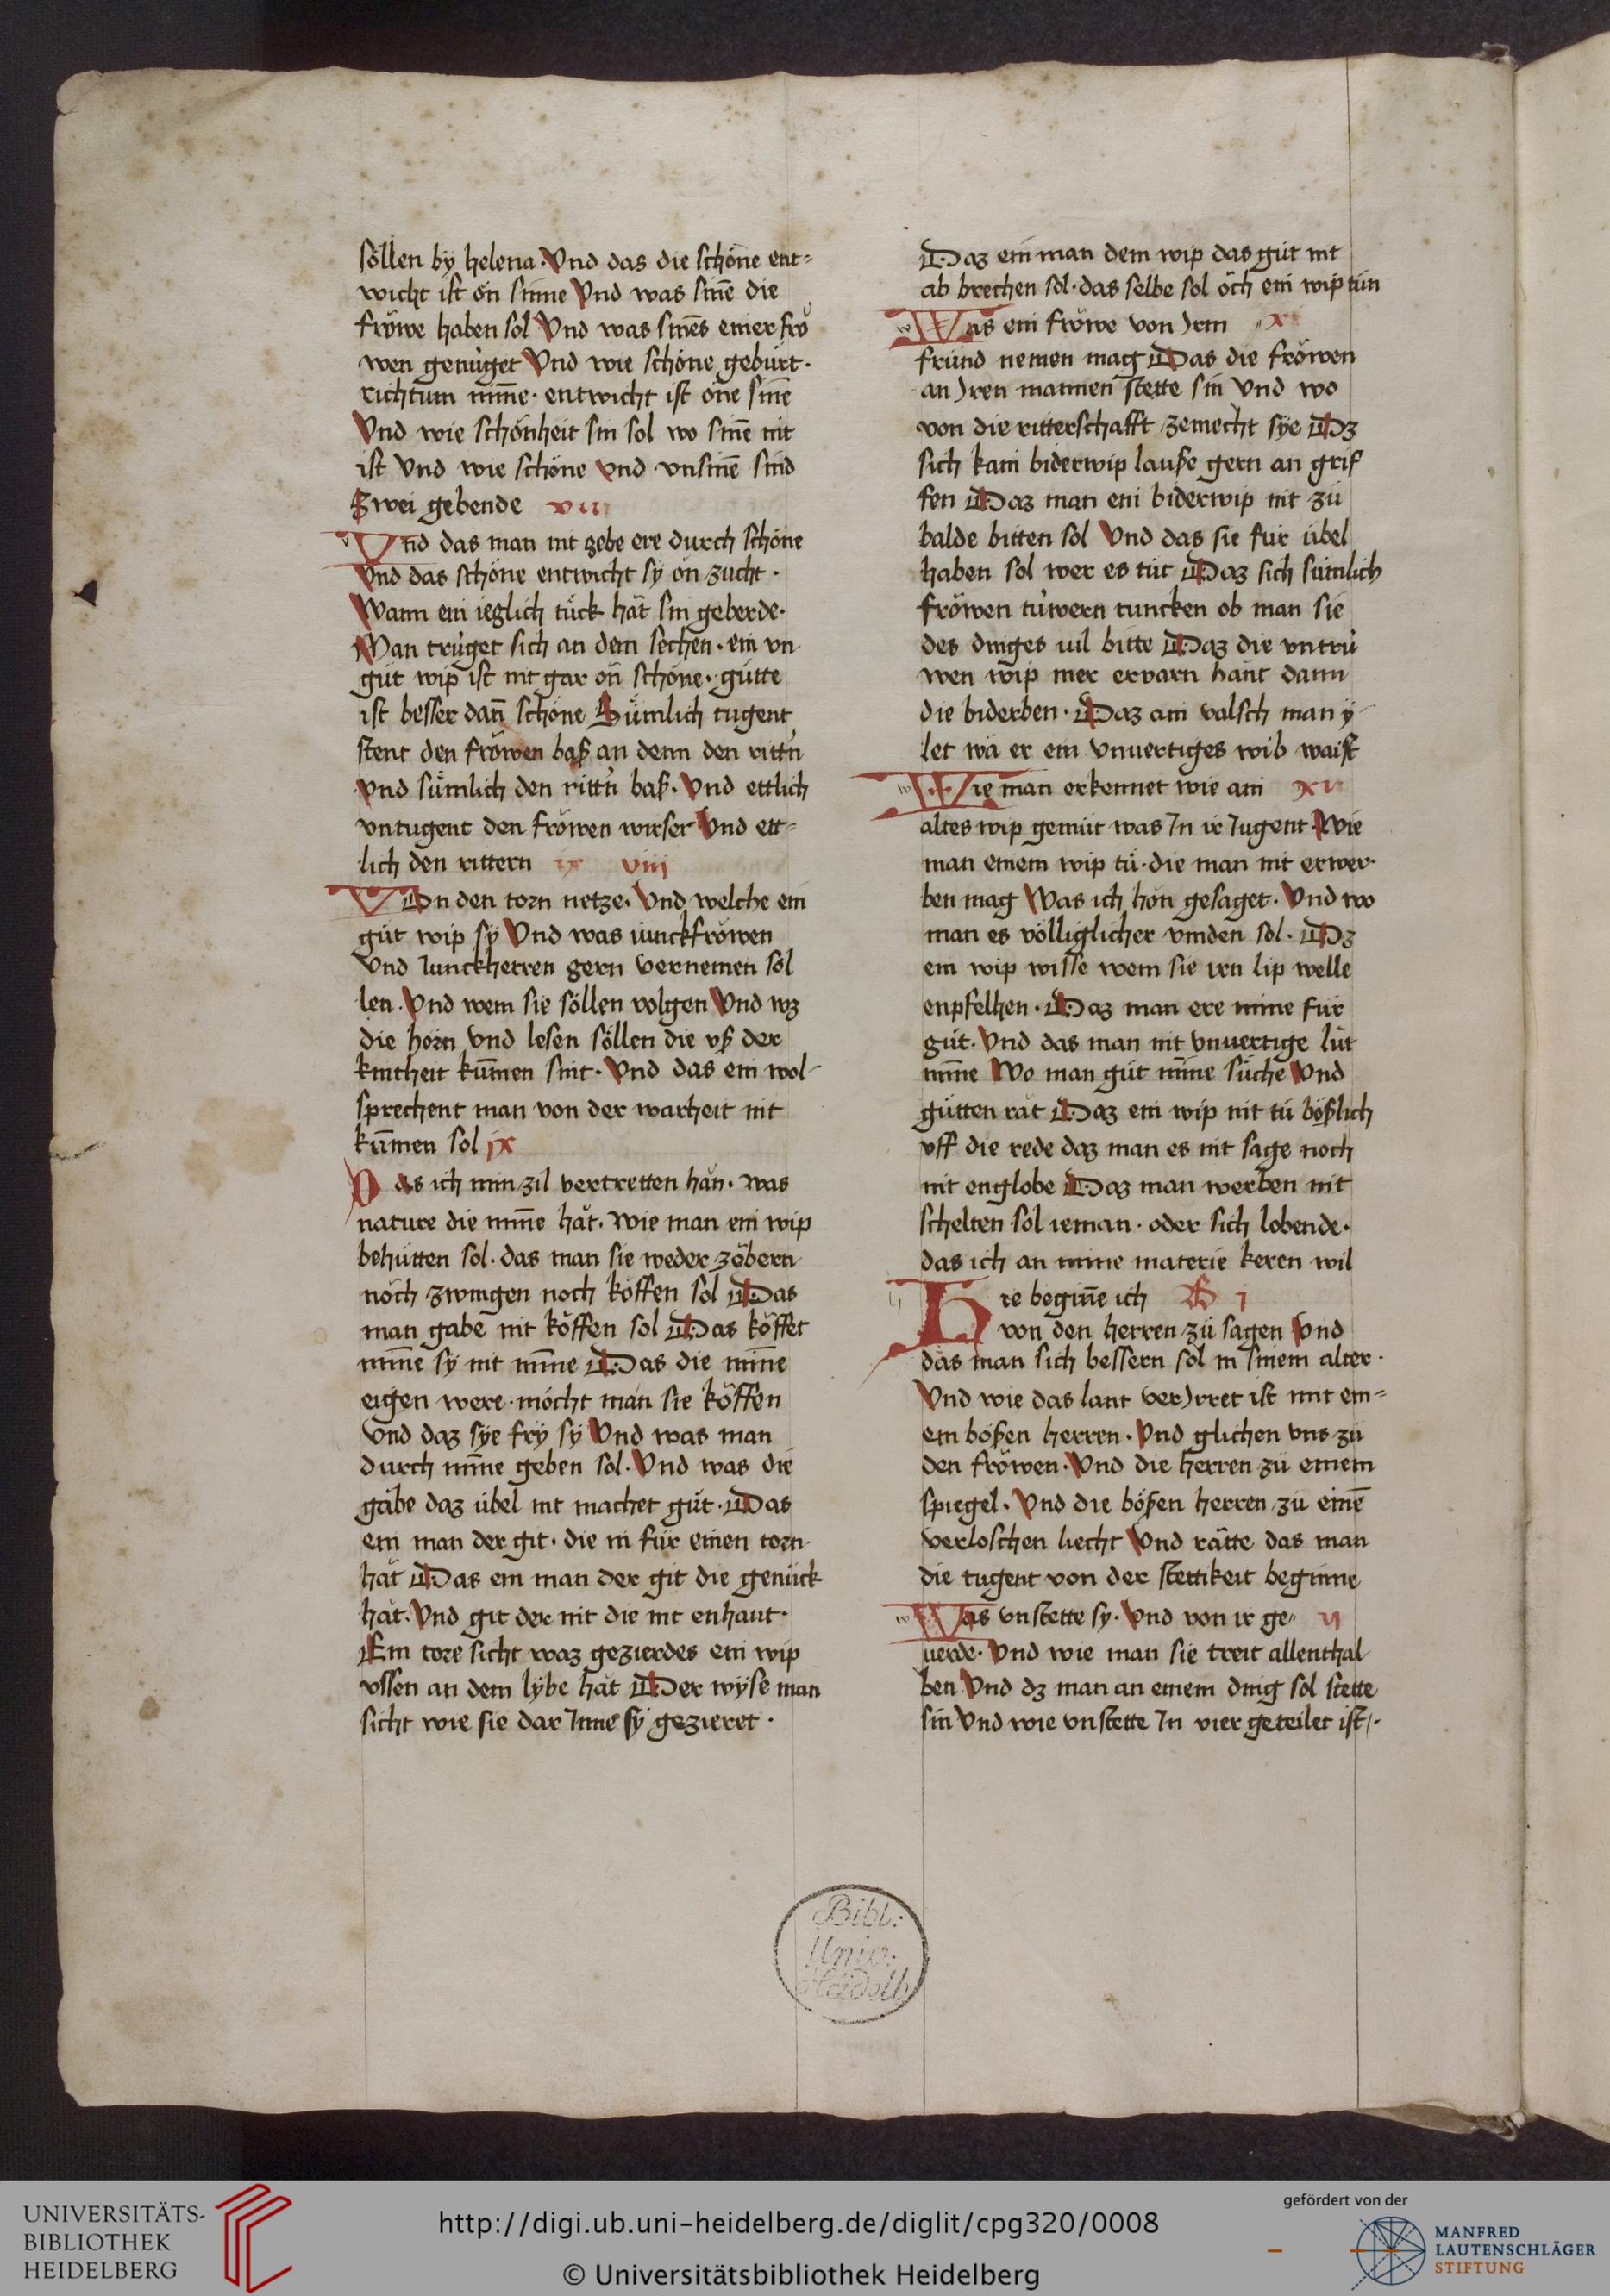 söllen by helena · Vnd das die schöne ent-
wicht ist ön sinne Vnd was sinē die
fröwe haben sol Vnd was sinēs einer frö
wen genu̇get Vnd wie schöne gebürt ·
richtum min̄e · entwicht ist öne sinē
Vnd wie schönheit sin sol wo sinē nit
ist Vnd wie schöne vnd vnsinē sind
Zwei gebende viii
Vnd das man nit gebe ere durch schöne
Vnd das schöne entwicht sy ön zucht ·
Wann ein ieglich tück hät sin geberde ·
Man tru̇get sich an dem sechen · ein vn
güt wip ist nit gar ön schöne · gütte
ist besser dan̄ schöne Sümlich tugent
stent den fröwen baß an denn den ritt'n
Vnd sümlich den ritt'n baß · Vnd ettlich
vntugent den fröwen wirser Vnd ett-
lich den rittern ix viiij
Von den torn netze · Vnd welche ein
güt wip sÿ Vnd was iunckfröwen
Vnd Junckherren gern vernemen söl
len · Vnd wem sie söllen volgen Vnd wz
die hörn vnd lesen söllen die vß der
kintheit kūmen sint · Vnd das ein wol-
sprechent man von der warheit nit
kūmen sol ix
Das ich min zil vertretten hän · was
nature die min̄e hät · Wie man ein wip
behütten sol · das man sie weder zöbern
noch zwingen noch köffen sol Das
man gabe nit köffen sol Das köffet
min̄e sy nit min̄e Das die min̄e
eigen were · möcht man sie köffen
Vnd daz sye fry sÿ Vnd was man
durch min̄e geben sol · Vnd was die
gäbe daz übel nit machet güt · Das
ein man der git · die in für einen torn
hät Das ein man der git die genück
hät · Vnd git der nit die nit enhaut ·
Ein tore sicht waz gezierdes ein wip
vssen an dem lÿbe hät Der wÿse man
sicht wie sie dar Jnne sÿ gezieret ·
Daz ein man dem wip das güt nit
ab brechen sol · das selbe sol öch ein wip tün
Was ein fröwe von Jrm x
fründ nemen mag Das die fröwen
an Jren mannen stette sin Vnd wo
von die ritterschafft zemecht sÿe Dz
sich kain biderwip lauße gern an grif
fen Daz man ein biderwip nit zü
balde bitten sol Vnd das sie für übel
haben sol wer es tüt Daz sich sümlich
fröwen tu̇wern tuncken ob man sie
des dinges uil bitte Daz die vntru̇
wen wip mer ervarn hant dann
die biderben · Daz ain valsch man ÿ
let wa er ein Vnuertiges wib waist
Wie man erkennet wie ain xi
altes wip gemüt was Jn ir Jugent Wie
man einem wip tü · die man nit erwer-
ben mag Was ich hön gesaget · Vnd wo
man es völliglicher vinden sol · Dz
ein wip wisse wem sie irn lip welle
enpfelhen · Daz man ere mine für
güt · Vnd das man nit vnuertige lüt
min̄e Wo man güt min̄e süche Vnd
gütten rät Daz ein wip nit tü bößlich
vff die rede daz man es nit sage noch
nit englobe Daz man werben nit
schelten söl ieman · oder sich lobende ·
das ich an mine materie keren wil
Hie begin̄e ich B i
von den herren zü sagen Vnd
das man sich bessern sol in sinem alter ·
Vnd wie das lant verJrret ist mit ein-
em bößen herren · Vnd glichen vns zü
den fröwen · Vnd die herren zü einem
spiegel · Vnd die bößen herren zü einē
verloschen liecht Vnd rätte das man
die tugent von der stettikeit beginne
Was vnstette sy · Vnd von ir ge ii
uerde · Vnd wie man sie treit allenthal
ben Vnd dz man an einem ding sol stette
sin Vnd wie vnstette Jn vier geteilet ist ·
Bibl:
Univ:
Heidelb
UNIVERSITÄTS-
BIBLIOTHEK
HEIDELBERG
http://digi.ub.uni-heidelberg.de/diglit/cpg320/0008
© Universitätsbibliothek Heidelberg
gefördert von der
MANFRED
LAUTENSCHLÄGER
STIFTUNG